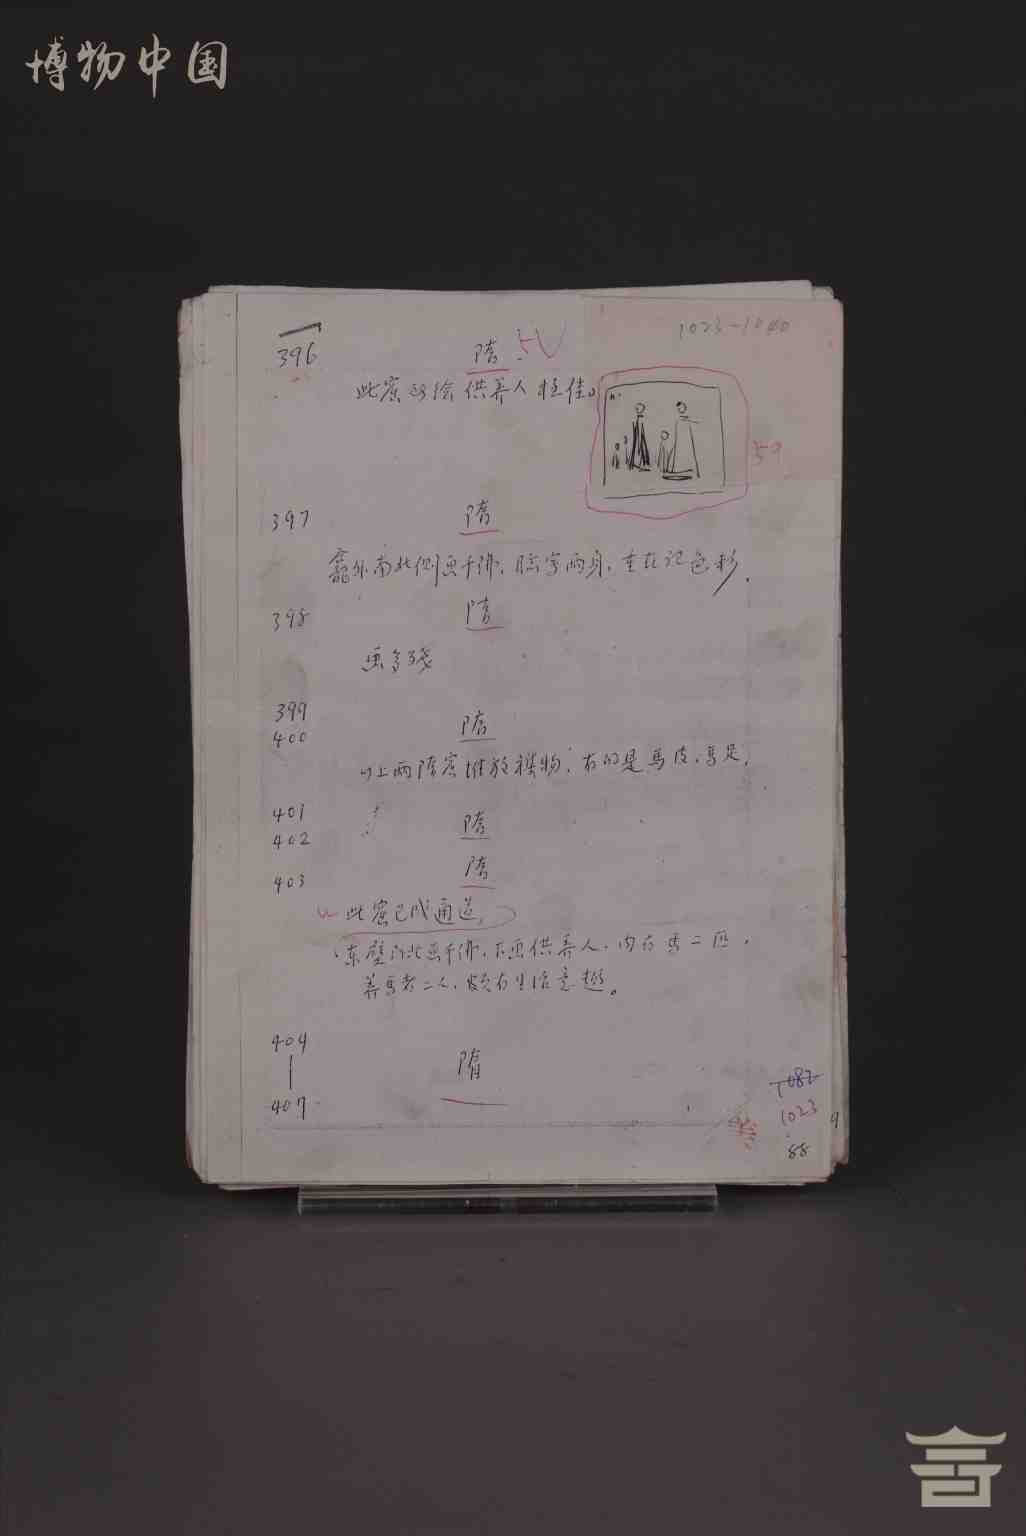 博物中国
1023-1040
396 隋
此窟所绘供养人极佳。
59
397 隋
龕外南北側画千佛,
398 隋
画多残
399
400 隋
以上两隋窟堆放襍物,有的是馬皮,馬足,
401
402 隋
403 隋
此窟已成通道,
东壁门北画千佛,下画供养人,内有馬二匹,
养馬者二人,颇有生活意趣。
404
|
407 隋
1082
1023
88
9